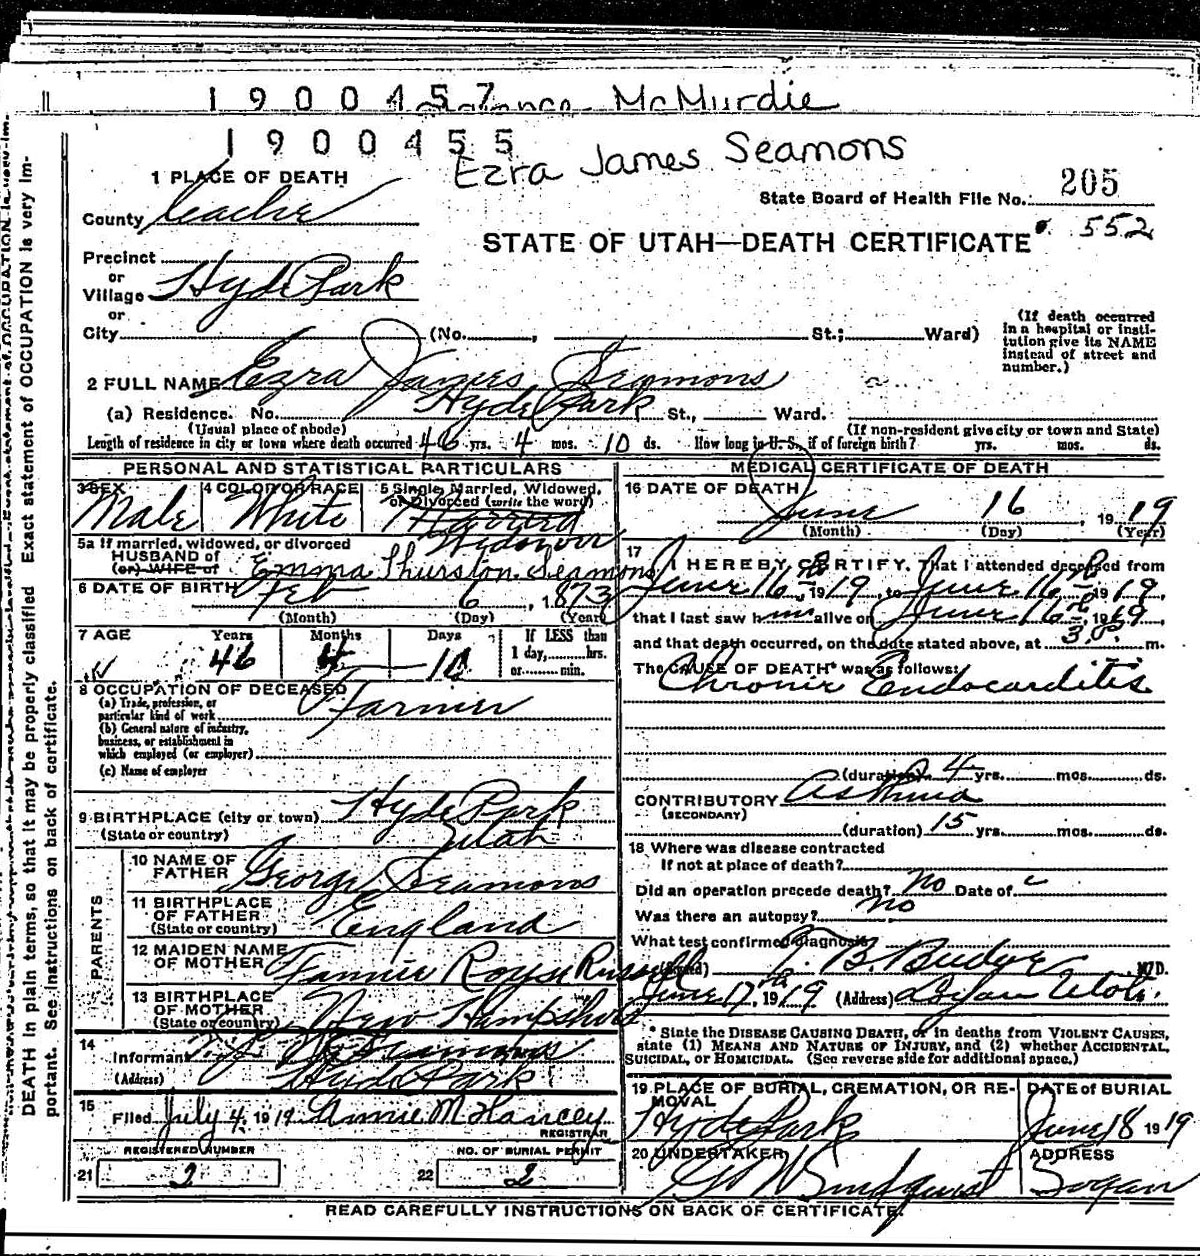 1900457 McMurdie
1900455
Ezra James Seamons
1 PLACE OF DEATH
State Board of Health File No. 205
County Cache
552
STATE OF UTAH—DEATH CERTIFICATE
Precinct
or
Village Hyde Park
or
City (No. , St.; Ward)
(If death occurred
in a hospital or insti-
tution give its NAME
instead of street and
number.)
2 FULL NAME Ezra James Seamons
(a) Residence. No. Hyde Park St., Ward.
(Usual place of abode) (If non-resident give city or town and State)
Length of residence in city or town where death occurred 46 yrs. 4 mos. 10 ds. How long in U. S., if of foreign birth? yrs. mos. ds.
PERSONAL AND STATISTICAL PARTICULARS
3 SEX 4 COLOR OR RACE 5 Single, Married, Widowed,
or Divorced (write the word)
Male White Married
Widower
5a If married, widowed, or divorced
HUSBAND of
(or) WIFE of Emma Thurston Seamons
6 DATE OF BIRTH Feb 6, 1873
(Month) (Day) (Year)
7 AGE Years Months Days If LESS than
1 day, hrs.
or min.
46 4 10
8 OCCUPATION OF DECEASED
(a) Trade, profession, or
particular kind of work Farmer
(b) General nature of industry,
business, or establishment in
which employed (or employer)
(c) Name of employer
9 BIRTHPLACE (city or town) Hyde Park
(State or country) Utah
PARENTS
10 NAME OF
FATHER George Seamons
11 BIRTHPLACE
OF FATHER
(State or country) England
12 MAIDEN NAME
OF MOTHER Fannie Russell
13 BIRTHPLACE
OF MOTHER
(State or country) New Hampshire
14
Informant Seamons
(Address) Hyde Park
15
Filed July 4, 1919 Annie M Hancey
REGISTRAR
REGISTERED NUMBER NO. OF BURIAL PERMIT
21 2 22 2
MEDICAL CERTIFICATE OF DEATH
16 DATE OF DEATH
June 16, 1919
(Month) (Day) (Year)
17
I HEREBY CERTIFY, That I attended deceased from
June 16, 1919, to June 16, 1919,
that I last saw him alive on June 16, 1919,
and that death occurred, on the date stated above, at 3 m.
The CAUSE OF DEATH* was as follows:
Chronic Endocarditis
(duration) 4 yrs. mos. ds.
CONTRIBUTORY Asthma
(SECONDARY)
(duration) 15 yrs. mos. ds.
18 Where was disease contracted
If not at place of death?
Did an operation precede death? no Date of
Was there an autopsy? no
What test confirmed diagnosis
(Signed) T. B. Budge M. D.
June 17, 1919 (Address) Logan Utah.
* State the DISEASE CAUSING DEATH, or in deaths from VIOLENT CAUSES,
state (1) MEANS AND NATURE OF INJURY, and (2) whether ACCIDENTAL,
SUICIDAL, or HOMICIDAL. (See reverse side for additional space.)
19 PLACE OF BURIAL, CREMATION, OR RE-
MOVAL
DATE of BURIAL
Hyde Park June 18 1919
20 UNDERTAKER ADDRESS
Lindquist Logan
READ CAREFULLY INSTRUCTIONS ON BACK OF CERTIFICATE.
DEATH in plain terms, so that it may be properly classified Exact statement of OCCUPATION is very im-
portant. See instructions on back of certificate.